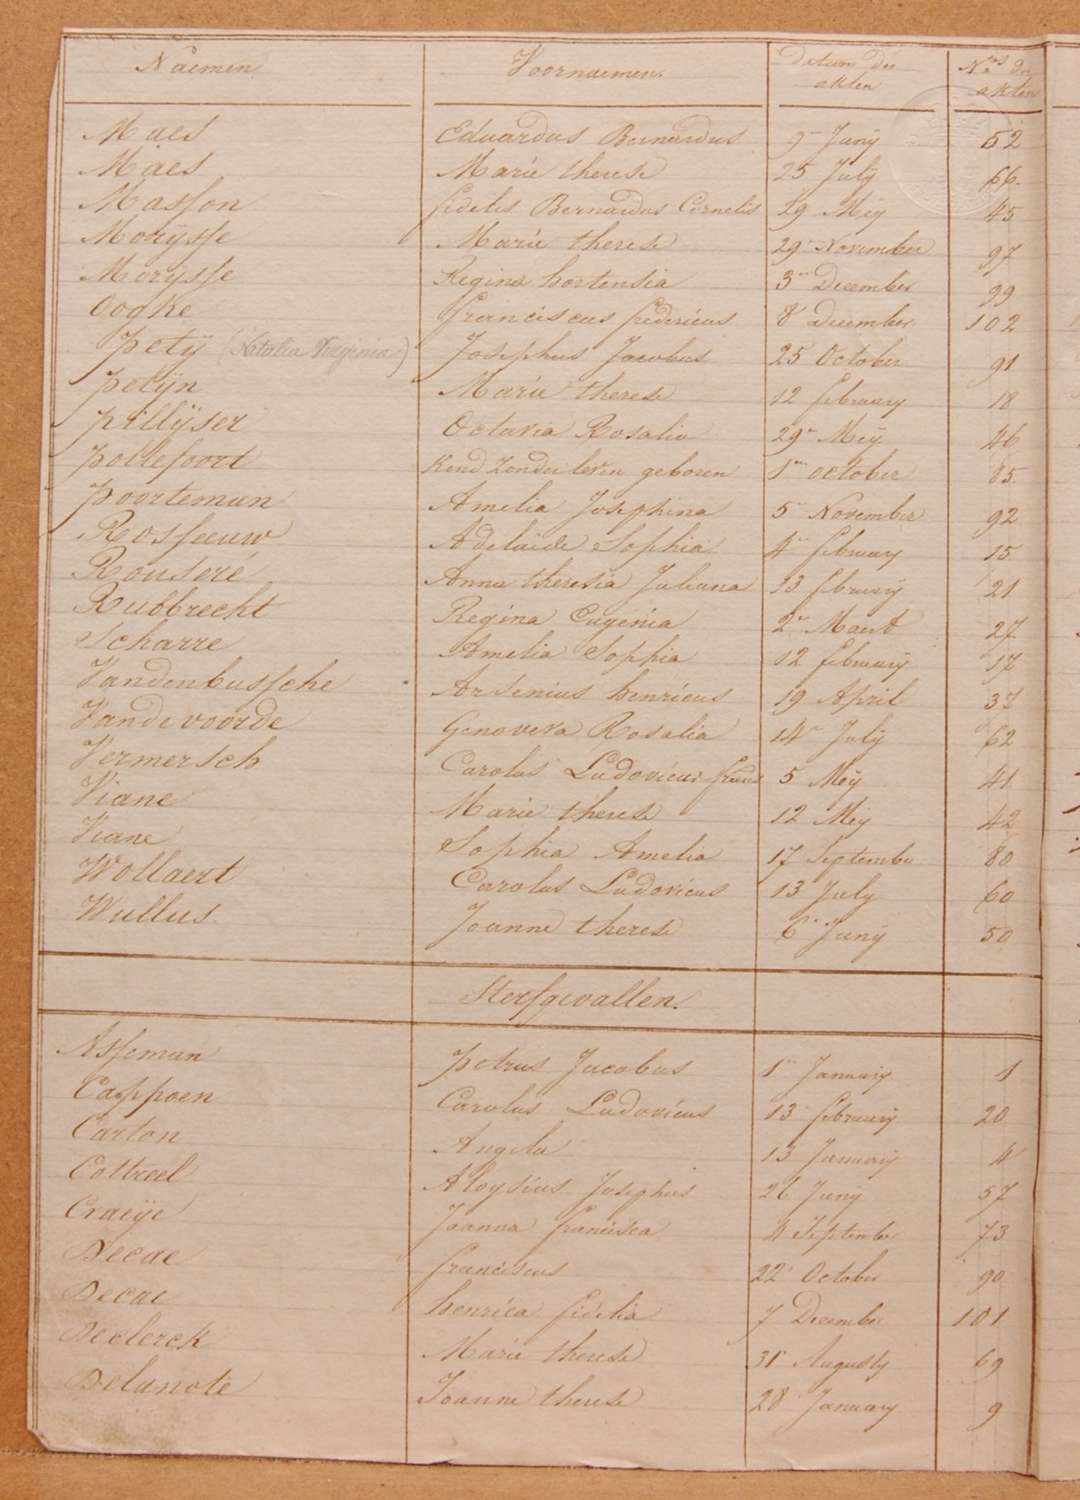 Naemen Voornaemen Datum der akten Nos der akten
Maes Eduardus Bernardus 9 Juny 52
Maes Marie therese 25 July 66
Masson fidelis Bernardus Cornelis 29 Mey 45
Morÿsse Marie therese 29 November 97
Morÿsse Regina hortensia 3 December 99
Oogke franciscus fredericus 8 December 102
petÿ (Natalia Virginia) Josephus Jacobus 25 October 91
petÿn Marie therese 12 february 18
pillÿser Octavia Rosalia 29 Meÿ 46
pollefoort Kind Zonder leven geboren 1 october 85
poorteman Amelia Josephina 5 November 92
Rosseeuw Adelaide Sophia 4 february 15
Rouseré Anna theresia Juliana 13 february 21
Rubbrecht Regina Eugenia 2 Maert 27
Scharre Amelia Sophia 12 february 17
Vandenbussche Arsenius henricus 19 April 37
Vandevoorde Genoveva Rosalia 14 July 62
Vermersch Carolus Ludovicus 5 Meÿ 41
Viane Marie therese 12 Meÿ 42
Viane Sophia Amelia 17 September 80
Wollaert Carolus Ludovicus 13 July 60
Wullus Joanne therese 6 Junÿ 50
Sterfgevallen.
Asseman petrus Jacobus 1 January 1
Cappoen Carolus Ludovicus 13 february 20
Carton Angela 13 January 4
Cottreel Aloysius Josephus 26 Junÿ 57
Craeÿe Joanna francisca 4 September 73
Decae franciscus 22 October 90
Decae henrica fidelia 7 December 101
Declerck Marie therese 31 Augusty 69
Delanote Joanne therese 28 January 9